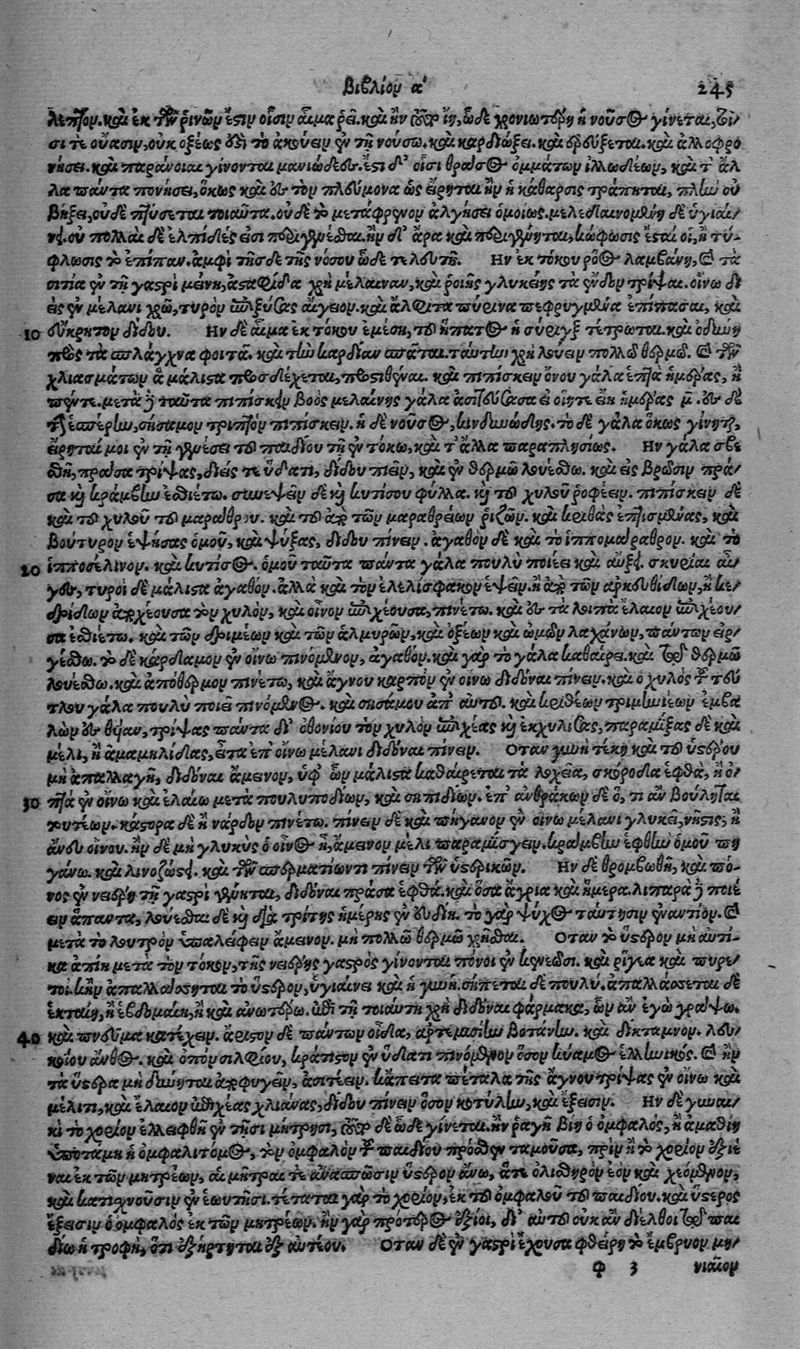 Βιβλίον α' 245
λεπτον. καὶ ἐκ τῶν ῥινῶν ἔστιν οἷσιν αἷμα ῥεῖ. καὶ ἢν οὕτω ἴῃ, ὧδε χρονιωτέρη ἡ νοῦσος γίνεται, τοῖ/
σί τε οὔασιν, οὐκ ὀξέως διὰ τὸ ἀκούειν ἐν τῇ νούσῳ. καὶ καρδιώξει. καὶ ἐρεύξεται. καὶ ἀλλοφρο
νήσει. καὶ παράνοιαι γίνονται μανιώδεες. ἔστι δ' οἷσι θράσος ὀμμάτων ἰλλωδέων, καὶ τ' ἄλ
λα πάντα πονήσει, ὅκως καὶ ἐς τὸν πλεύμονα ὡς εἴρηται ἢν ἡ κάθαρσις τράπηται, πλὴν οὐ
βήξει, οὐδὲ πτύσεται τοιαῦτα. οὐδὲ τὸ μετάφρενον ἀλγήσει ὁμοίως. μελεδαινομένη δὲ ὑγιαί/
νει. οὐ πολλαὶ δὲ ἐλπίδες εἰσὶ περιγενέσθαι. ἢν δ' ἄρα καὶ περιγένηται, κώφωσις ἔσται οἱ, ἢ τύ/
φλωσις τὸ ἐπίπαν. ἀμφὶ τῆσδε τῆς νόσου ὧδε τελευτᾷ. Ἢν ἐκ τόκου ῥόος λαμβάνῃ, καὶ τὰ
σιτία ἐν τῇ γαστρὶ μένῃ, ἀσταφίδα χρὴ μέλαιναν, καὶ ῥοιῆς γλυκείης τὰ ἔνδον τρῖψαι. οἴνῳ δι
εὶς ἐν μέλανι χρῶ, τυρὸν ἐπιξύσας αἴγειον. καὶ ἄλφιτα πύρινα πεφρυγμένα ἐπίπασαι, καὶ
10 εὔκρητον δίδου. Ἢν δὲ αἷμα ἐκ τόκου ἐμέσῃ, τοῦ ἥπατος ἡ σύριγξ τέτρωται. καὶ ὀδύνη
πρὸς τὰ σπλάγχνα φοιτᾷ. καὶ τὴν καρδίαν σπᾶται. ταύτην χρὴ λούειν πολλῷ θερμῷ. καὶ τῶν
χλιασμάτων ἃ μάλιστα προσδέχεται, προστιθέναι. καὶ πιπίσκειν ὄνου γάλα ἑπτὰ ἡμέρας, ἢ
πέντε. μετὰ δὲ ταῦτα πιπίσκειν βοὸς μελαίνης γάλα ἀσιτεῦσα εἰ οἵη τε εἴη ἡμέρας μ. ἐς δὲ
τὴν ἑσπέρην, σήσαμον τριπτὸν πιπίσκειν. ἡ δὲ νοῦσος, κινδυνώδης. τὸ δὲ γάλα ὅκως γίνηται,
εἴρηταί μοι ἐν τῇ γενέσει τοῦ παιδίου τῇ ἐν τόκῳ, καὶ τ' ἄλλα παραπλησίως. Ἢν γάλα σβε
σθῇ, πράσα τρίψας, διείς τε ὕδατι, δίδου πιεῖν, καὶ ἐν θερμῷ λουέσθω. καὶ ἐς βρῶσιν πρά/
σα καὶ κράμβην ἐσθιέτω. συνεψεῖν δὲ καὶ κυτίσου φύλλα. καὶ τοῦ χυλοῦ ῥοφέειν. πιπίσκειν δὲ
καὶ τοῦ χυλοῦ τοῦ μαράθρου. καὶ τοῦ ἀπὸ τῶν μαραθρέων ῥιζῶν. καὶ κριθὰς ἐπτισμένας, καὶ
βούτυρον ἑψήσας ὁμοῦ, καὶ ψύξας, δίδου πίνειν. ἀγαθὸν δὲ καὶ τὸ ἱππομάραθρον. καὶ τὸ
20 ἱπποσέλινον. καὶ κύτισος. ὁμοῦ ταῦτα πάντα γάλα πουλὺ ποιέει καὶ αὔξει. σκυρίαι αἴ/
γες, τυροὶ δὲ μάλιστα ἀγαθόν. ἀλλὰ καὶ τὸν ἐλελίσφακον ἕψειν. ἢ ἀπὸ τῶν ἀρκευθίδων, ἢ κε/
δρίδων ἀποχέουσα τὸν χυλόν, καὶ οἶνον ἐπιχέουσα, πινέτω. καὶ ἐς τὰ λοιπὰ ἔλαιον ἐπιχέου/
σα ἐσθιέτω. καὶ τῶν δριμέων καὶ τῶν ἁλμυρῶν, καὶ ὀξέων καὶ ὠμῶν λαχάνων, πάντων εἰρ/
γέσθω. τὸ δὲ κάρδαμον ἐν οἴνῳ πινόμενον, ἀγαθόν. καὶ γὰρ τὸ γάλα καθαίρει. καὶ τῷ θερμῷ
λουέσθω. καὶ ἀπόθερμον πινέτω, καὶ ἄγνου καρπὸν ἐν οἴνῳ διδόναι πίνειν. καὶ ὁ χυλὸς τοῦ τευ
τλου γάλα πουλὺ ποιεῖ πινόμενος. καὶ σησάμου ἀπ' αὐτοῦ. καὶ κριθέων τριμηνιέων ἐμβα
λὼν ἐς θυῖαν, τρίψας πάντα δι' ὀθονίου τὸν χυλὸν ἐπιχέας καὶ ἐκχυλίσας, παραμίξας δὲ καὶ
μέλι, ἢ ἁμαμηλίδας, εἶτα ἐπ' οἴνῳ μέλανι διδόναι πίνειν. Ὅταν γυνὴ τέκῃ καὶ τοῦ ὑστέρου
μὴ ἀπαλλαγῇ, διδόναι ἄμεινον, ὑφ' ὧν μάλιστα καθαίρεται τὰ λοχεῖα, σκόροδα ἑφθὰ, ἢ ὀ/
30 πτὰ ἐν οἴνῳ καὶ ἐλαίῳ μετὰ πουλυποδίων, καὶ σηπιδίων. ἐπ' ἀνθράκων δὲ ὅ, τι ἂν βούληται
τουτέων. κάστορα δὲ ἢ νάρδον πινέτω. πίνειν δὲ καὶ πήγανον ἐν οἴνῳ μέλανι γλυκεῖ, νῆστις, ἢ
ἄνευ οἴνου. ἢν δὲ μὴ γλυκὺς ὁ οἶνος ᾖ, ἄμεινον μέλι παραμίσγειν. κράμβην ἑφθὴν ὁμοῦ πη
γάνῳ. καὶ λινοζώστει. καὶ τῶν σπερμάτων τι πίνειν τῶν ὑστερικῶν. Ἢν δὲ θρομβωθῇ, καὶ πό/
νος ἐν νειέρῃ τῇ γαστρὶ γένηται, διδόναι πράσα ἑφθὰ. καὶ ὅσα ἄγρια καὶ ἥμερα. λιπαρὰ δὲ ποιέ
ειν ἅπαντα, λούεσθαι δὲ καὶ διὰ τρίτης ἡμέρης ἐν εὐδίῃ. τὸ γὰρ ψῦχος ταύτῃσιν ἐναντίον. καὶ
μετὰ τὸ λουτρὸν ὑπαλείφειν ἄμεινον. μὴ πολλῷ θερμῷ χρῆσθαι. Ὅταν τὸ ὕστερον μὴ αὐτί/
κα ἀπίῃ μετὰ τὸν τόκον, τῆς νειέρης γαστρὸς γίνονται πόνοι ἐν κενεῶσι. καὶ ῥίγεα καὶ πυρε/
τοί. κἢν ἀπαλλάσσηται τὸ ὕστερον, ὑγιαίνει καὶ ἡ γυνή. σήπεται δὲ πουλὺ, ἀπαλλάσσεται δὲ
ἑκταίη, ἢ ἑβδομαίη, ἢ καὶ ἀνωτέρω. ἐπὶ τῇ τοιαύτῃ χρὴ διδόναι φάρμακα, ὧν ἂν ἐγὼ γράψω.
40 καὶ πνεῦμα κατέχειν. ἄριστον δὲ πάντων οἶδα, ἀρτεμισίην βοτάνην. καὶ δίκταμνον. λευ/
κοΐου ἄνθος. καὶ ὀπὸν σιλφίου, κράτιστον ἐν ὕδατι πινόμενον ὅσον κύαμος ἑλληνικός. καὶ ἢν
τὰ ὕστερα μὴ δύνηται ἀποφυγεῖν, ἀσιτέειν. κἄπειτα πέταλα τῆς ἄγνου τρίψας ἐν οἴνῳ καὶ
μέλιτι, καὶ ἔλαιον ἐπιχέας χλιήνας, δίδου πίνειν ὅσον κοτύλην, καὶ ἔξεισιν. Ἢν δὲ γυναι/
κὶ τὸ χόριον ἐλλειφθῇ ἐν τῇσι μήτρῃσι, τοῦτο δὲ ὧδε γίνεται. ἢν ῥαγῇ βίῃ ὁ ὀμφαλός, ἢ ἀμαθίῃ
ὑποτάμῃ ἡ ὀμφαλιτόμος, τὸν ὀμφαλὸν τοῦ παιδίου πρόσθεν ταμοῦσα, πρὶν ἢ τὸ χόριον ἐξιέ
ναι ἐκ τῶν μητρέων, αἱ μῆτραί τε ἀνασπῶσιν ὕστερον ἄνω, ἅτε ὀλισθηρὸν ἐὸν καὶ χεόμενον,
καὶ κατίσχουσιν ἐν ἑωυτῇσι. τέταται γὰρ τὸ χόριον, ἐκ τοῦ ὀμφαλοῦ τοῦ παιδίου. καὶ ὕστερος
ἔξεισιν ὁ ὀμφαλὸς ἐκ τῶν μητρέων. ἢν γὰρ πρότερος ἐξίοι, δι' αὐτοῦ οὐκ ἂν διέλθοι τῷ παι
δίῳ ἡ τροφή, ὅτι ἐξήρτηται ἐξ αὐτέου. Ὅταν δὲ ἐν γαστρὶ ἔχουσα φθείρῃ τὸ ἔμβρυον μη/
φ 3 νιαῖον